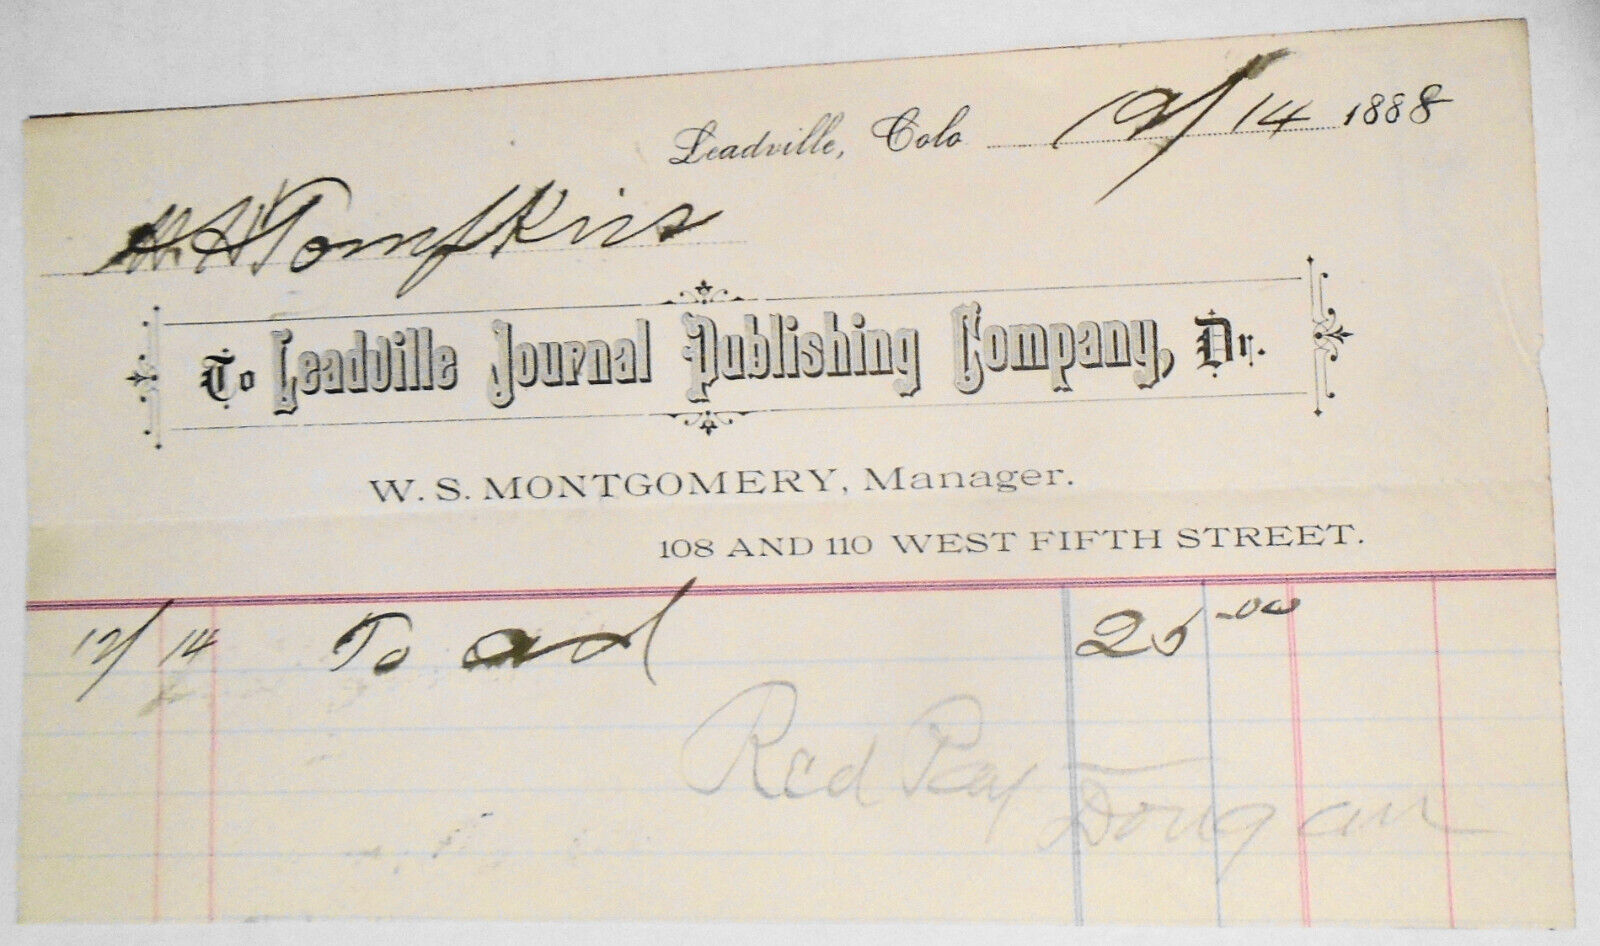 Leadville, Colo 12/14 1888
Tompkins
To Leadville Journal Publishing Company, Dr.
W. S. MONTGOMERY, Manager.
108 AND 110 WEST FIFTH STREET.
12/14 To ad 25.00
Rcd Pay
Dougan